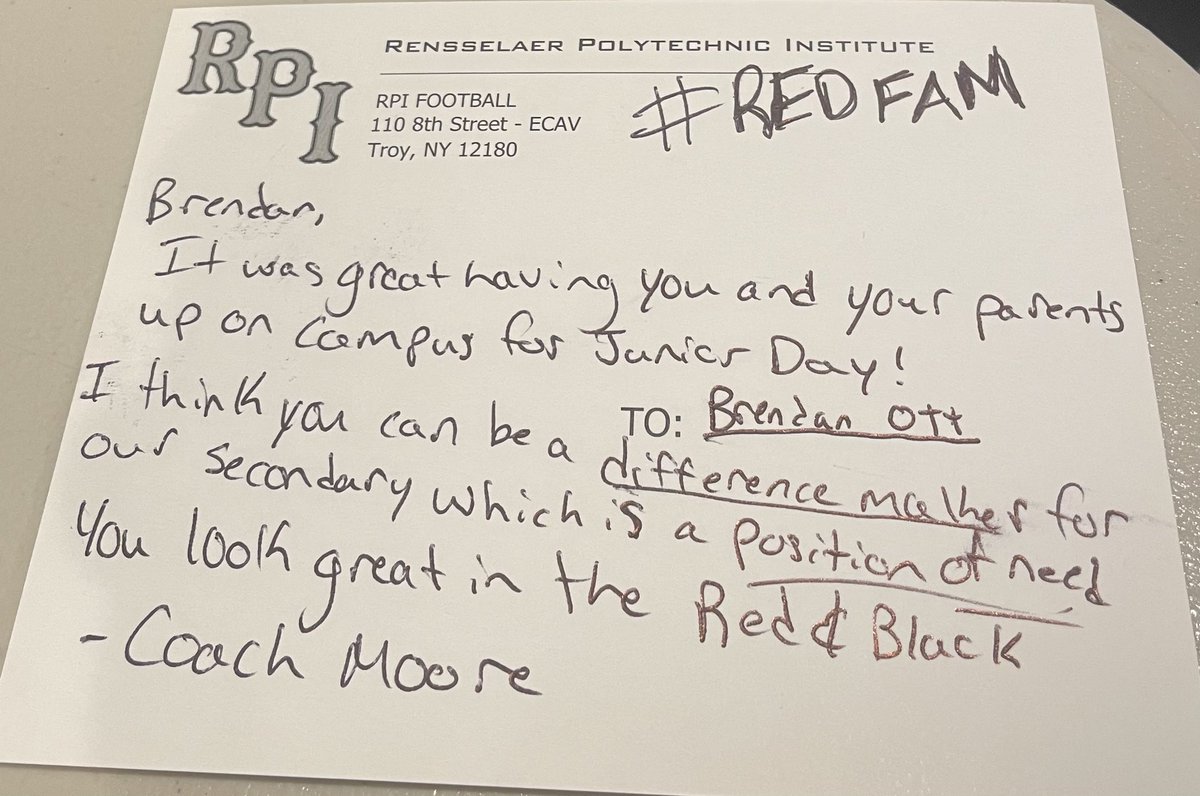 RPI
RENSSELAER POLYTECHNIC INSTITUTE
RPI FOOTBALL
110 8th Street - ECAV
Troy, NY 12180
#REDFAM
Brendan,
It was great having you and your parents
up on campus for Junior Day!
TO: Brendan Ott
I think you can be a difference maker for
our secondary which is a position of need
You look great in the Red & Black
- Coach Moore